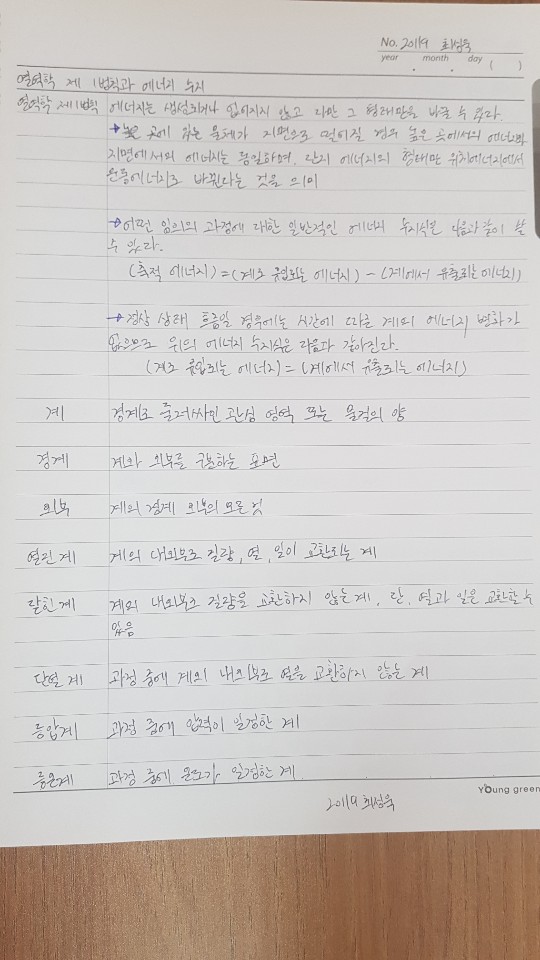 No. 20119 최성욱
year . month . day ( )
열역학 제 1법칙과 에너지 수지
열역학 제1법칙 에너지는 생성되거나 없어지지 않고 다만 그 형태만을 바꿀 수 있다.
→ 높은 곳에 있는 물체가 지면으로 떨어질 경우 높은 곳에서의 에너지와
지면에서의 에너지는 동일하며, 단지 에너지의 형태만 위치에너지에서
운동에너지로 바뀐다는 것을 의미
→ 어떤 임의의 과정에 대한 일반적인 에너지 수지식은 다음과 같이 쓸
수 있다.
(축적 에너지) = (계로 유입되는 에너지) - (계에서 유출되는 에너지)
→ 정상 상태 흐름일 경우에는 시간에 따른 계의 에너지 변화가
없으므로 위의 에너지 수지식은 다음과 같아진다.
(계로 유입되는 에너지) = (계에서 유출되는 에너지)
계 경계로 둘러싸인 관심 영역 또는 물질의 양
경계 계와 외부를 구분하는 표면
외부 계의 경계 외부의 모든 것
열린 계 계의 내외부로 질량, 열, 일이 교환되는 계
닫힌 계 계의 내외부로 질량을 교환하지 않는 계, 단, 열과 일은 교환할 수
있음
단열 계 과정 중에 계의 내외부로 열을 교환하지 않는 계
등압계 과정 중에 압력이 일정한 계
등온계 과정 중에 온도가 일정한 계
Young green
20119 최성욱